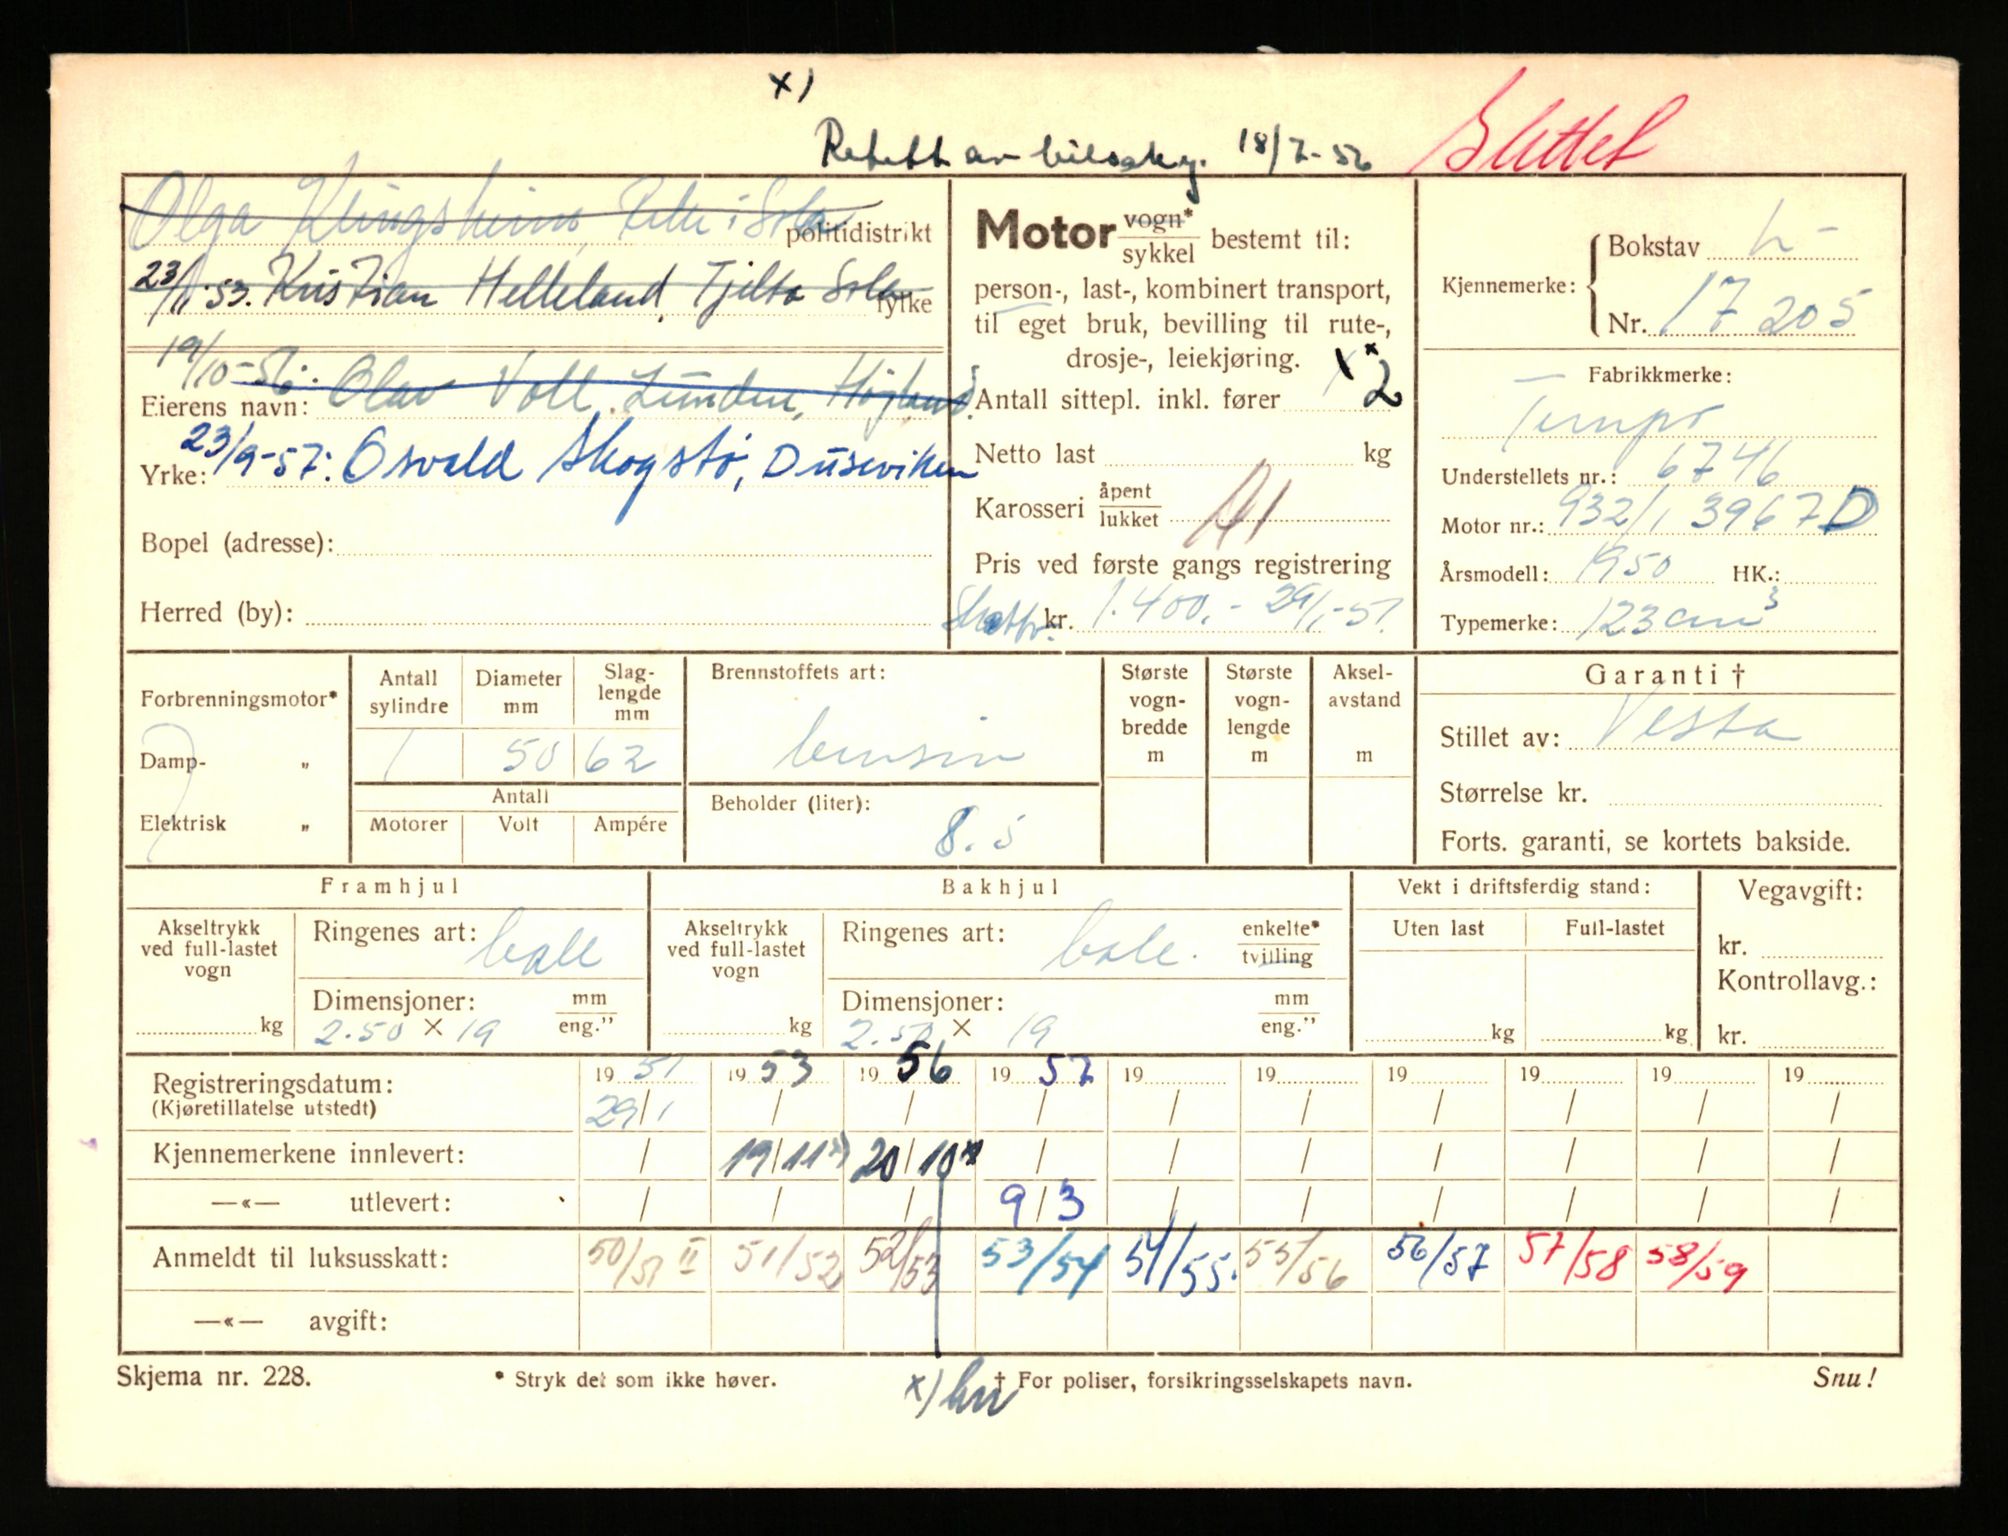 x)
av 18/7-56 Slettet
Olga Klingsheim, i Sola
politidistrikt
23/11-53. Kristian Helleland, Tjelta Sola
fylke
19/10-56: Olav Voll, Lunden, Høyland.
Eierens navn:
23/9-57: Osvald Skogstø, Duseviken
Yrke:
Bopel (adresse):
Herred (by):
Motor vogn* sykkel bestemt til:
person-, last-, kombinert transport,
til eget bruk, bevilling til rute-,
drosje-, leiekjøring.
Antall sittepl. inkl. fører x 2
Netto last kg
Karosseri åpent lukket
Pris ved første gangs registrering
kr. 1.400.- 29/1-51.
Kjennemerke:
Bokstav L-
Nr. 17 205
Fabrikkmerke:
Tempo
Understellets nr.: 6746
Motor nr.: 932/1 3967 D
Årsmodell: 1950 HK.:
Typemerke: 123 cm³
Forbrenningsmotor*
Damp- „
Elektrisk „
Antall sylindre
Diameter mm
Slag-lengde mm
1 50 62
Antall
Motorer Volt Ampére
Brennstoffets art:
bensin
Beholder (liter):
8.5
Største vogn-bredde m
Største vogn-lengde m
Aksel-avstand m
Garanti †
Stillet av: Vesta
Størrelse kr.
Forts. garanti, se kortets bakside.
Framhjul
Akseltrykk ved full-lastet vogn
kg
Ringenes art:
Dimensjoner: mm eng."
2.50 x 19
Bakhjul
Akseltrykk ved full-lastet vogn
kg
Ringenes art: enkelte* tvilling
Dimensjoner: mm eng."
2.50 x 19
Vekt i driftsferdig stand:
Uten last Full-lastet
kg kg
Vegavgift:
kr.
Kontrollavg.:
kr.
Registreringsdatum: 19 51 19 53 19 56 19 57 19 19 19 19 19 19
(Kjøretillatelse utstedt) 29/1 / / / / / / / / /
Kjennemerkene innlevert: / 19/11 x) 20/10 x) / / / / / / /
—«— utlevert: / / / 9/3 / / / / / /
Anmeldt til luksusskatt: 50/51 II 51/52 52/53 53/54 54/55. 55/56 56/57 57/58 58/59
—«— avgift:
Skjema nr. 228. * Stryk det som ikke høver. x) † For poliser, forsikringsselskapets navn. Snu!